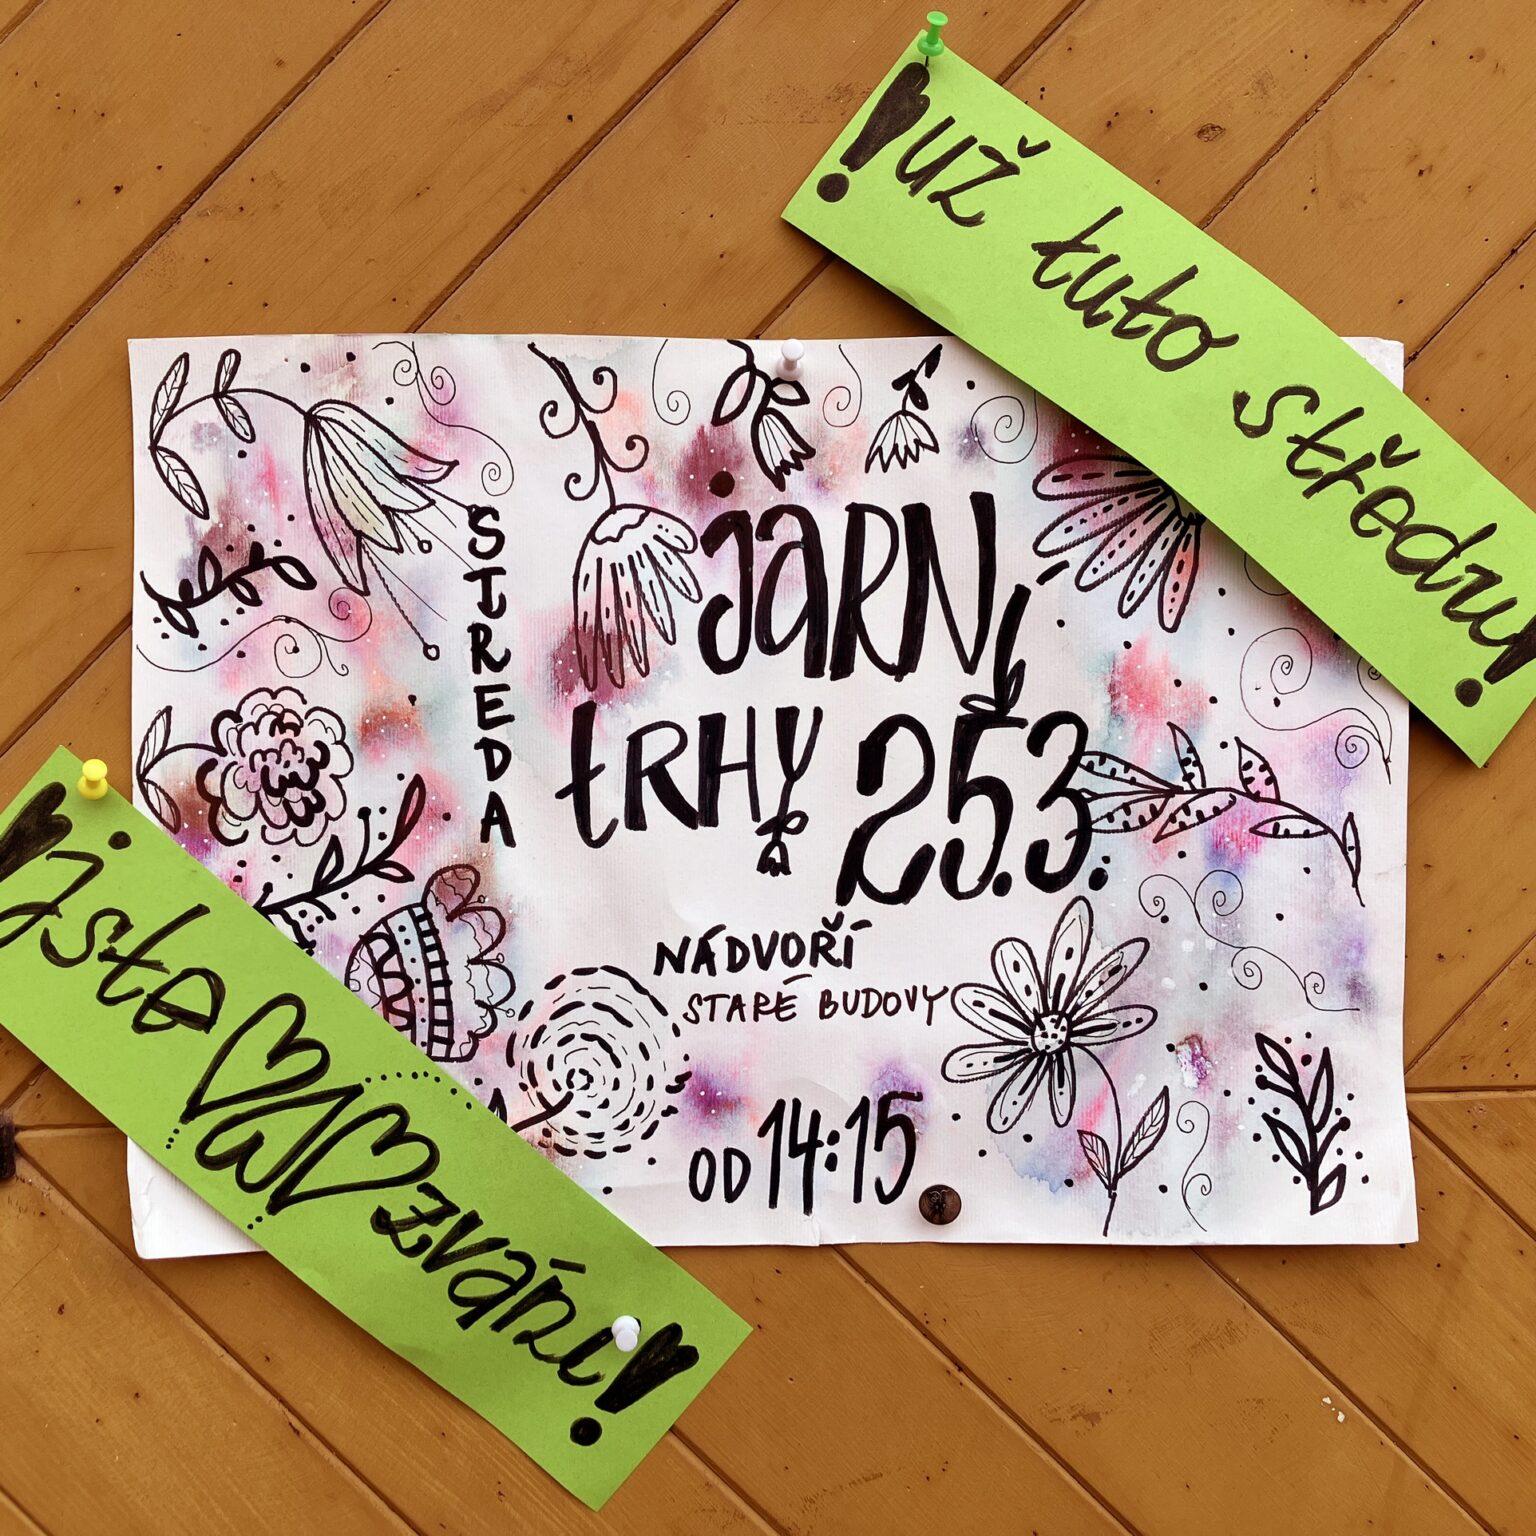 !už tuto středu!
STŘEDA
jARNí
tRHY 25.3.
NÁDVOŘÍ
STARÉ BUDOVY
OD 14:15
!jste zváni!